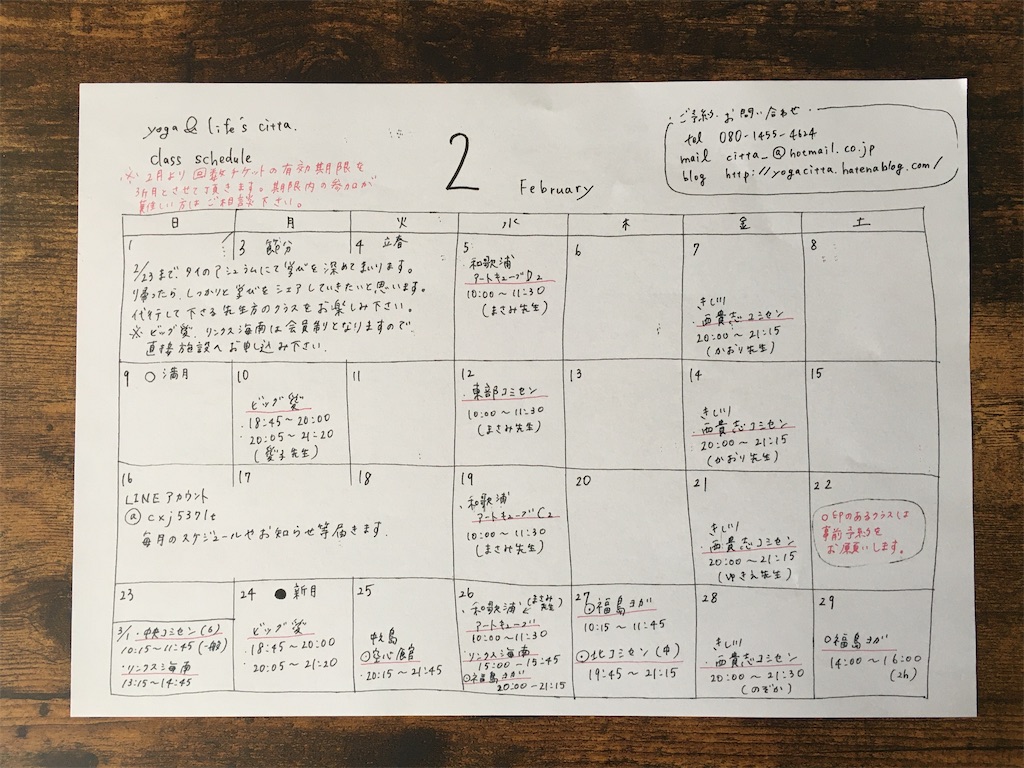 yoga & life's citta.
class schedule
※ 2月より回数チケットの有効期限を
3ヶ月とさせて頂きます。期限内の参加が
難しい方はご相談下さい。
2
February
ご予約・お問い合わせ
tel 080-1455-4624
mail citta_@hotmail.co.jp
blog http://yogacitta.hatenablog.com/
日 月 火 水 木 金 土
1
3 節分
4 立春
2/23まで、タイのアシュラムにて学びを深めてまいります。
帰ったら、しっかりと学びをシェアしていきたいと思います。
代行して下さる先生方のクラスをお楽しみ下さい。
※ ビッグ愛、リンクス海南は会員制となりますので
直接施設へお申し込み下さい。
5
・和歌浦
アートキューブD2
10:00〜11:30
(まさみ先生)
6
7
きしい
・西貴志コミセン
20:00〜21:15
(かおり先生)
8
9 ○満月
10
ビッグ愛
・18:45〜20:00
・20:05〜21:20
(愛子先生)
11
12
・東部コミセン
10:00〜11:30
(まさみ先生)
13
14
きしい
・西貴志コミセン
20:00〜21:15
(かおり先生)
15
16
LINEアカウント
@cxj5371t
毎月のスケジュールやお知らせ等届きます。
17
18
19
・和歌浦
アートキューブC2
10:00〜11:30
(まさみ先生)
20
21
きしい
・西貴志コミセン
20:00〜21:15
(ゆきえ先生)
22
○印のあるクラスは
事前予約を
お願いします。
23
3/1・中央コミセン(6)
10:15〜11:45(一般)
・リンクス海南
13:15〜14:45
24 ●新月
ビッグ愛
・18:45〜20:00
・20:05〜21:20
25
○空心館
・20:15〜21:45
26
・和歌浦(まさみ先生)
アートキューブ
10:00〜11:30
・リンクス海南
15:00-15:45
○福島ヨガ
20:00-21:15
27
○福島ヨガ
10:15〜11:45
○北コミセン(中)
19:45〜21:15
28
きしい
・西貴志コミセン
20:00〜21:30
(のぞか)
29
○福島ヨガ
14:00〜16:00
(2h)